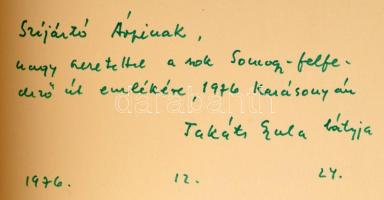 Szijártó Árpinak,
nagy szeretettel a sok Somogy-felfe-
dező út emlékére, 1976 karácsonyán
Takáts Gyula bátyja
1976. 12. 24.